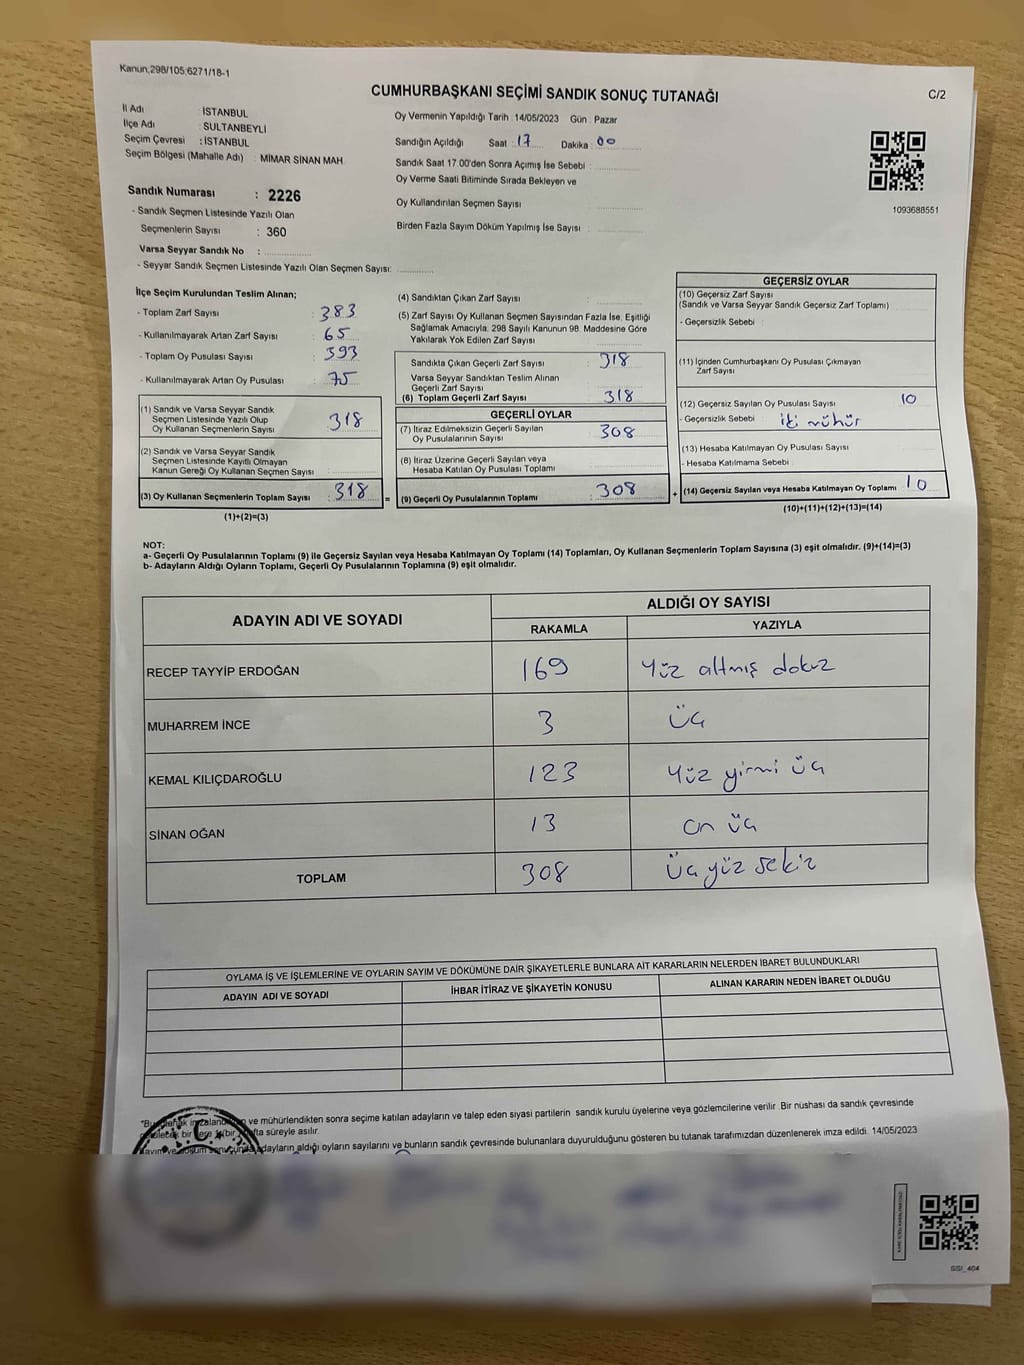 Kanun;298/105;6271/18-1
CUMHURBAŞKANI SEÇİMİ SANDIK SONUÇ TUTANAĞI
C/2
İl Adı : İSTANBUL
İlçe Adı : SULTANBEYLİ
Seçim Çevresi : İSTANBUL
Seçim Bölgesi (Mahalle Adı) : MİMAR SİNAN MAH.
Sandık Numarası : 2226
- Sandık Seçmen Listesinde Yazılı Olan
Seçmenlerin Sayısı : 360
Varsa Seyyar Sandık No :
- Seyyar Sandık Seçmen Listesinde Yazılı Olan Seçmen Sayısı:
Oy Vermenin Yapıldığı Tarih : 14/05/2023 Gün : Pazar
Sandığın Açıldığı Saat : 17 Dakika : 00
Sandık Saat 17.00'den Sonra Açımış İse Sebebi :
Oy Verme Saati Bitiminde Sırada Bekleyen ve
Oy Kullandırılan Seçmen Sayısı
Birden Fazla Sayım Döküm Yapılmış İse Sayısı :
1093688551
İlçe Seçim Kurulundan Teslim Alınan;
- Toplam Zarf Sayısı : 383
- Kullanılmayarak Artan Zarf Sayısı : 65
- Toplam Oy Pusulası Sayısı : 393
- Kullanılmayarak Artan Oy Pusulası : 75
(1) Sandık ve Varsa Seyyar Sandık
Seçmen Listesinde Yazılı Olup
Oy Kullanan Seçmenlerin Sayısı : 318
(2) Sandık ve Varsa Seyyar Sandık
Seçmen Listesinde Kayıtlı Olmayan
Kanun Gereği Oy Kullanan Seçmen Sayısı :
(3) Oy Kullanan Seçmenlerin Toplam Sayısı : 318 =
(1)+(2)=(3)
(4) Sandıktan Çıkan Zarf Sayısı :
(5) Zarf Sayısı Oy Kullanan Seçmen Sayısından Fazla İse, Eşitliği
Sağlamak Amacıyla, 298 Sayılı Kanunun 98. Maddesine Göre
Yakılarak Yok Edilen Zarf Sayısı :
Sandıkta Çıkan Geçerli Zarf Sayısı : 318
Varsa Seyyar Sandıktan Teslim Alınan
Geçerli Zarf Sayısı :
(6) Toplam Geçerli Zarf Sayısı : 318
GEÇERLİ OYLAR
(7) İtiraz Edilmeksizin Geçerli Sayılan
Oy Pusulalarının Sayısı : 308
(8) İtiraz Üzerine Geçerli Sayılan veya
Hesaba Katılan Oy Pusulası Toplamı :
(9) Geçerli Oy Pusulalarının Toplamı : 308 +
GEÇERSİZ OYLAR
(10) Geçersiz Zarf Sayısı
(Sandık ve Varsa Seyyar Sandık Geçersiz Zarf Toplamı) :
- Geçersizlik Sebebi :
(11) İçinden Cumhurbaşkanı Oy Pusulası Çıkmayan
Zarf Sayısı :
(12) Geçersiz Sayılan Oy Pusulası Sayısı : 10
- Geçersizlik Sebebi : iki mühür
(13) Hesaba Katılmayan Oy Pusulası Sayısı :
- Hesaba Katılmama Sebebi :
(14) Geçersiz Sayılan veya Hesaba Katılmayan Oy Toplamı : 10
(10)+(11)+(12)+(13)=(14)
NOT:
a- Geçerli Oy Pusulalarının Toplamı (9) ile Geçersiz Sayılan veya Hesaba Katılmayan Oy Toplamı (14) Toplamları, Oy Kullanan Seçmenlerin Toplam Sayısına (3) eşit olmalıdır. (9)+(14)=(3)
b- Adayların Aldığı Oyların Toplamı, Geçerli Oy Pusulalarının Toplamına (9) eşit olmalıdır.
ADAYIN ADI VE SOYADI ALDIĞI OY SAYISI
RAKAMLA YAZIYLA
RECEP TAYYİP ERDOĞAN 169 Yüz altmış dokuz
MUHARREM İNCE 3 üç
KEMAL KILIÇDAROĞLU 123 Yüz yirmi üç
SİNAN OĞAN 13 on üç
TOPLAM 308 üç yüz sekiz
OYLAMA İŞ VE İŞLEMLERİNE VE OYLARIN SAYIM VE DÖKÜMÜNE DAİR ŞİKAYETLERLE BUNLARA AİT KARARLARIN NELERDEN İBARET BULUNDUKLARI
ADAYIN ADI VE SOYADI İHBAR İTİRAZ VE ŞİKAYETİN KONUSU ALINAN KARARIN NEDEN İBARET OLDUĞU
ve mühürlendikten sonra seçime katılan adayların ve talep eden siyasi partilerin sandık kurulu üyelerine veya gözlemcilerine verilir. Bir nüshası da sandık çevresinde
bir hafta süreyle asılır.
adayların aldığı oyların sayılarını ve bunların sandık çevresinde bulunanlara duyurulduğunu gösteren bu tutanak tarafımızdan düzenlenerek imza edildi. 14/05/2023
SSI_404